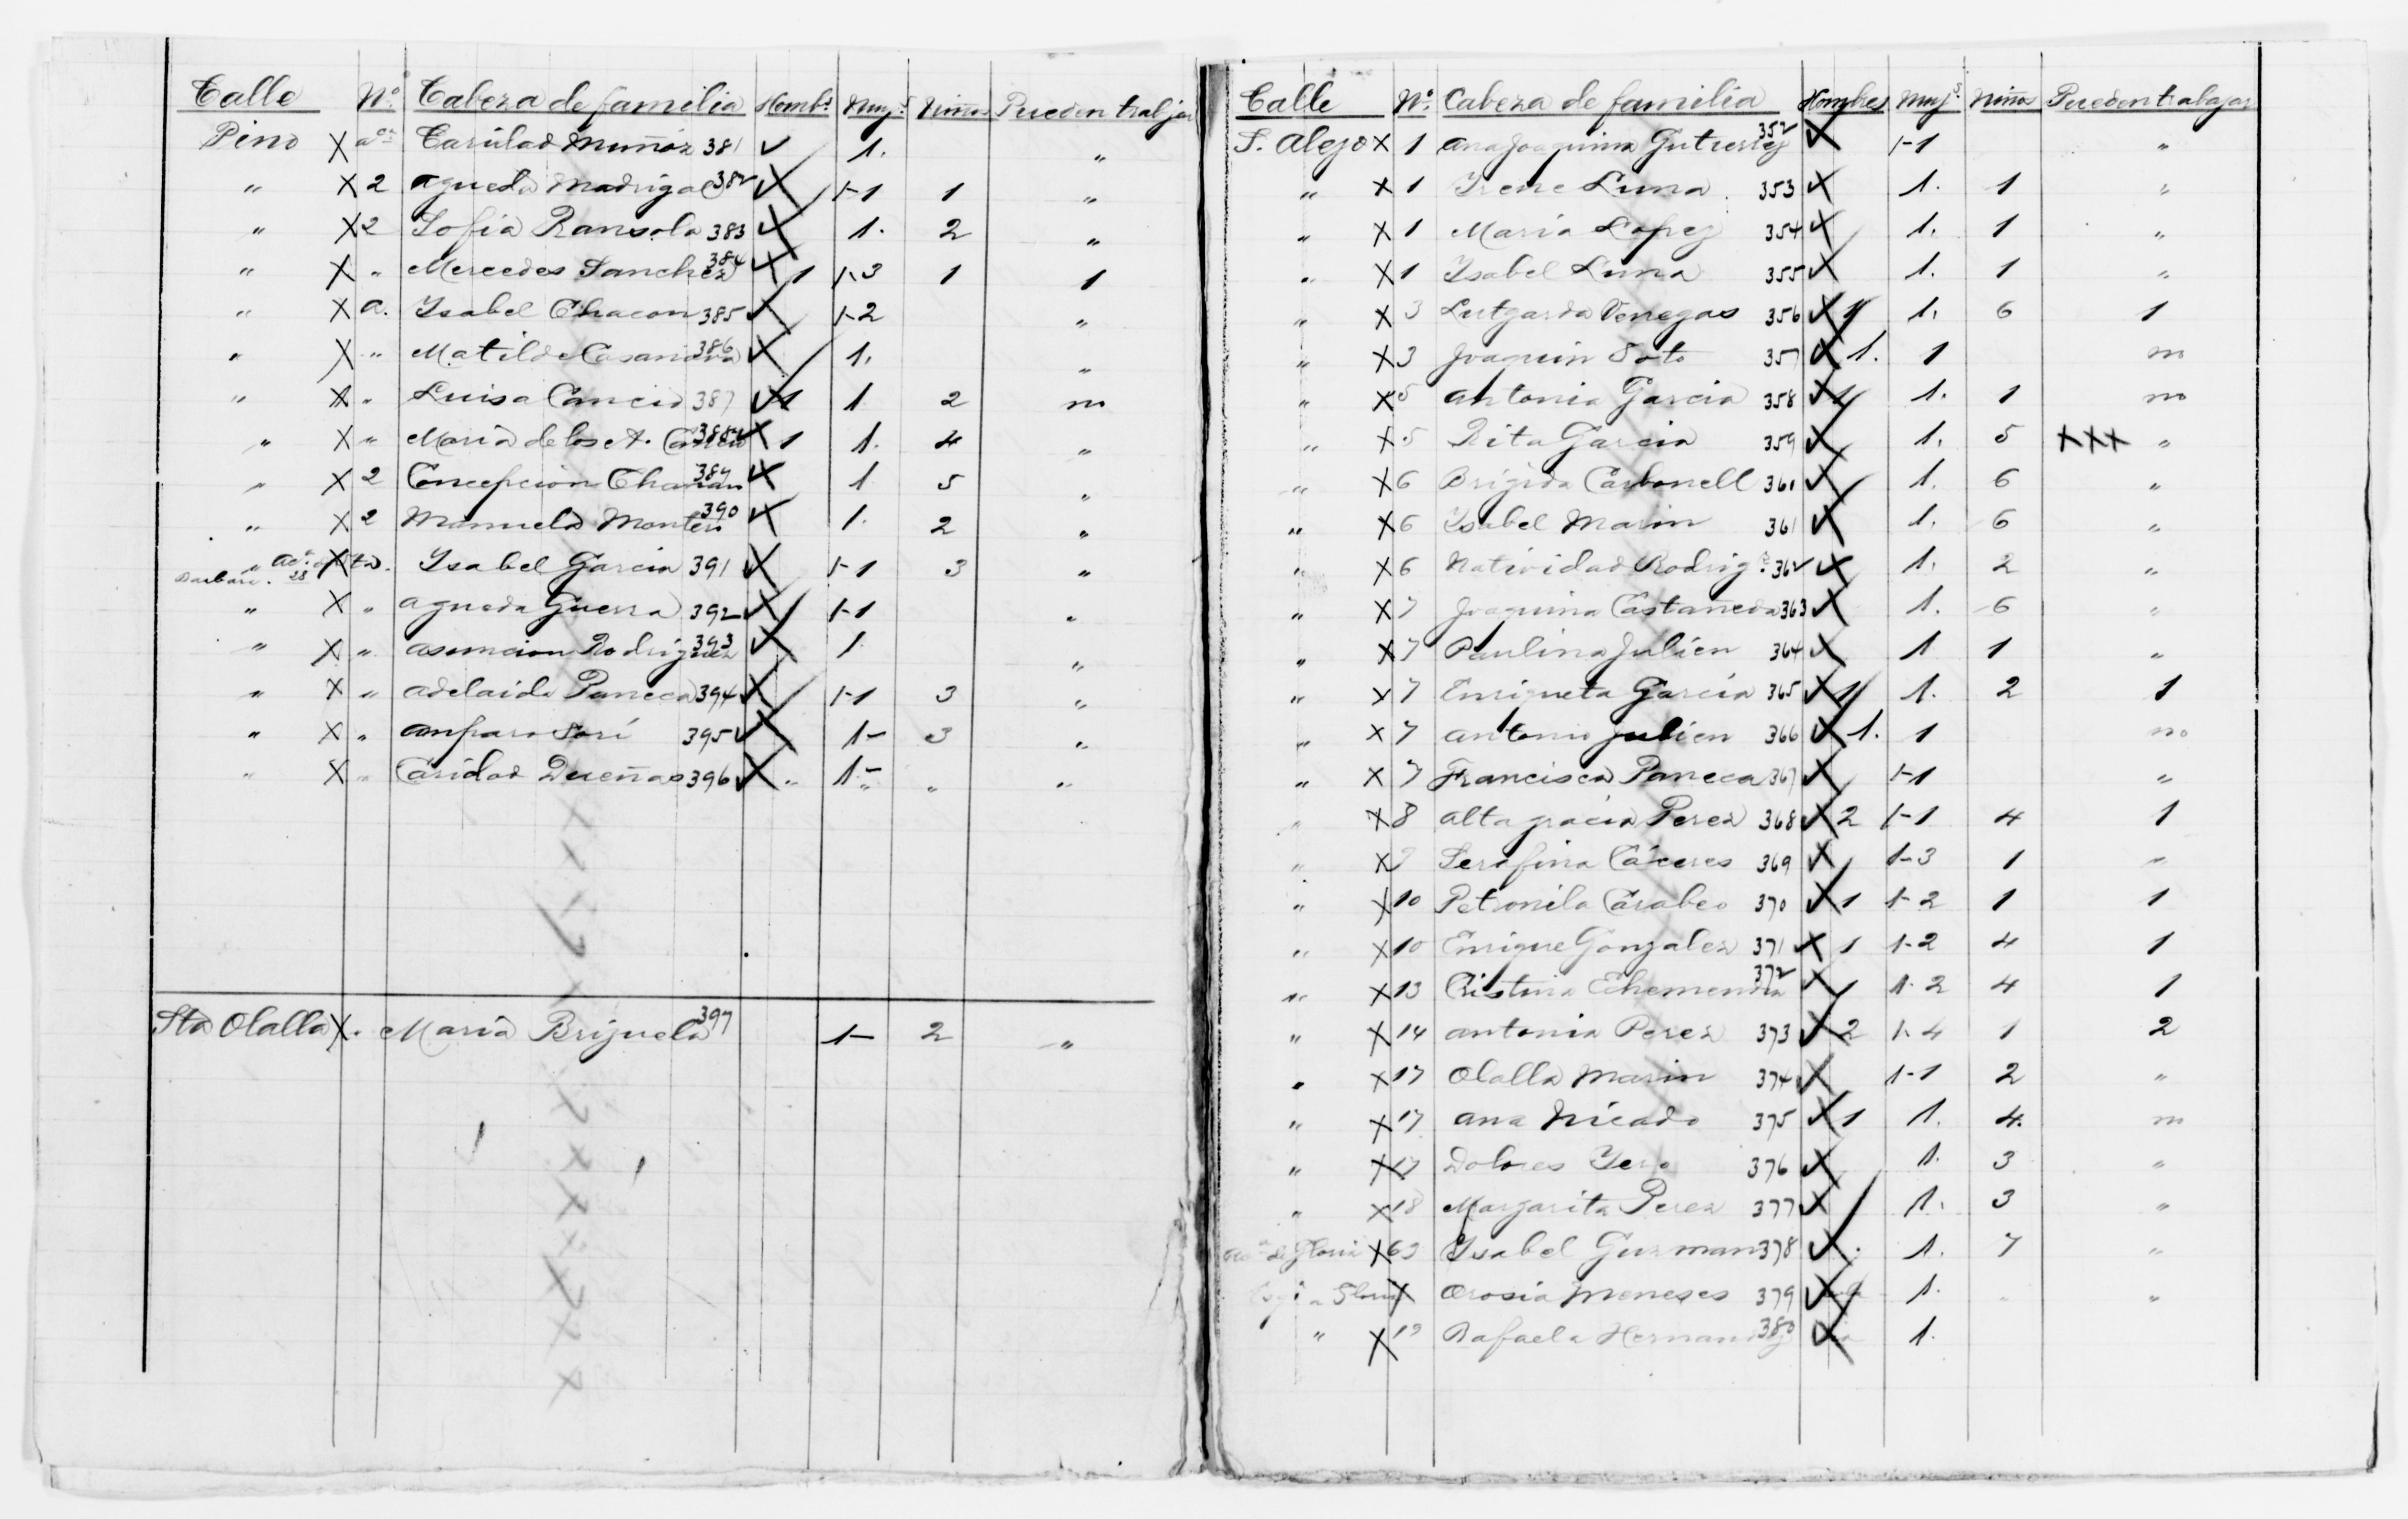 Calle Nº Cabeza de familia Homb.s Muj.s Niños Pueden trabajar
Pino X a.a Caridad Muñóz 381 ✓ 1. "
" X 2 Agueda Madrigal 382 X 1-1 1 "
" X 2 Sofia Ransola 383 X 1. 2 "
" X " Mercedes Sanchez 384 X 1 1-3 1 1
" X a. Ysabel Chacon 385 X 1-2 "
" X " Matilde Casanova 386 X 1. "
" X " Luisa Cancio 387 X 1 1 2 no
" X " Maria de los A. 388 X 1 1. 4 "
" X 2 Concepcion 389 X 1 5 "
" X 2 Manuela Montero 390 X 1. 2 "
" Barbara. 28 X Ysabel Garcia 391 X 1-1 3 "
" X " Agueda Guerra 392 X 1-1 "
" X " Asuncion Rodriguez 393 X 1 "
" X " Adelaida Paneca 394 X 1-1 3 "
" X " Amparo Sorí 395 X 1- 3 "
" X " Caridad Dueñas 396 X " 1- " "
Sta Olalla X . Maria Brizuela 397 1- 2 "
Calle Nº Cabeza de familia Hombres Muj.s Niños Pueden trabajar
S. Alejo X 1 Ana Joaquina Gutierrez 352 X 1-1 "
" X 1 Yrene Luna 353 X 1. 1 "
" X 1 Maria Lopez 354 X 1. 1 "
" X 1 Ysabel Luna 355 X 1. 1 "
" X 3 Lutgarda Venegas 356 X 1 1. 6 1
" X 3 Joaquin Soto 357 X 1. 1 no
" X 5 Antonia Garcia 358 X 1 1. 1 no
" X 5 Rita Garcia 359 X 1. 5 XXX "
" X 6 Brigida Carbonell 361 X 1. 6 "
" X 6 Ysabel Marin 361 X 1. 6 "
" X 6 Natividad Rodrig.z 362 X 1. 2 "
" X 7 Joaquina Castañeda 363 X 1. 6 "
" X 7 Paulina Julien 364 X 1 1 "
" X 7 Enriqueta Garcia 365 X 1 1. 2 1
" X 7 Antonio Julien 366 X 1. 1 no
" X 7 Francisca Paneca 367 X 1-1 "
" X 8 Altagracia Perez 368 X 2 1-1 4 1
" X 9 Serafina Cáceres 369 X 1-3 1 "
" X 10 Petronila Carabeo 370 X 1 1-2 1 1
" X 10 Enrique Gonzalez 371 X 1 1-2 4 1
" X 13 Cristina Echemendia 372 X 1 1-2 4 1
" X 14 Antonia Perez 373 X 2 1-4 1 2
" X 17 Olalla Marin 374 X 1-1 2 "
" X 17 Ana Nicado 375 X 1 1. 4. no
" X 17 Dolores Yero 376 X 1. 3 "
" X 18 Margarita Perez 377 X 1. 3 "
de Gloria X 63 Ysabel Guzman 378 X . 1. 7 "
a Gloria X Orosia Meneses 379 X 1. "
" X 19 Rafaela Hernandez 380 X 1.